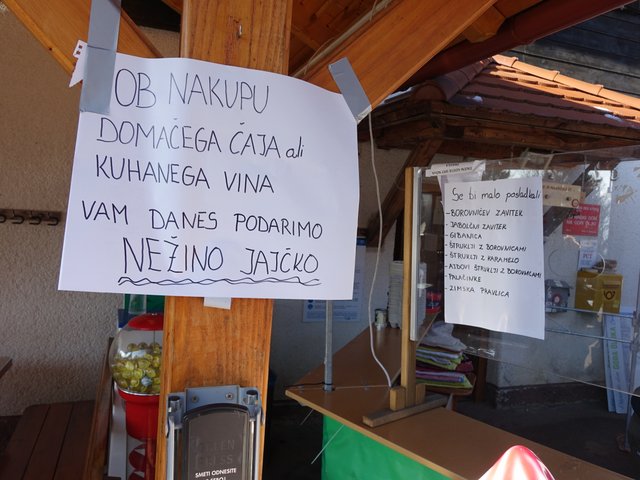 OB NAKUPU
DOMAČEGA ČAJA ali
KUHANEGA VINA
VAM DANES PODARIMO
NEŽINO JAJČKO
Se bi malo posladkali
- BOROVNIČEV ZAVITEK
- JABOLČNI ZAVITEK
- GIBANICA
- ŠTRUKLJI Z BOROVNICAMI
- ŠTRUKLJI Z KARAMELO
- AJDOVI ŠTRUKLJI Z BOROVNICAMI
- PALAČINKE
- ZIMSKA PRAVLJICA
SMETI ODNESITE